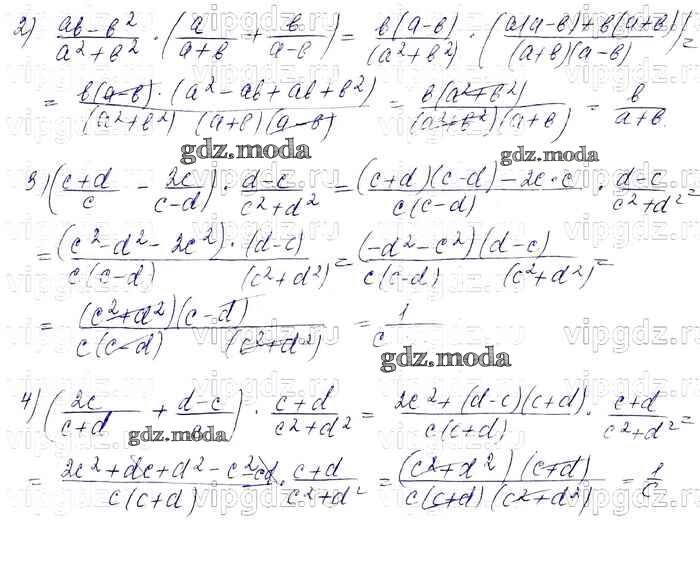 2) (ab-b²)/(a²+b²) · (a/(a+b) + b/(a-b)) = b(a-b)/(a²+b²) · (a(a-b)+b(a+b))/((a+b)(a-b)) =
= b(a-b)·(a²-ab+ab+b²)/((a²+b²)(a+b)(a-b)) = b(a²+b²)/((a²+b²)(a+b)) = b/(a+b).
gdz.moda gdz.moda
3) ((c+d)/c - 2c/(c-d)) · (d-c)/(c²+d²) = ((c+d)(c-d)-2c·c)/(c(c-d)) · (d-c)/(c²+d²) =
= (c²-d²-2c²)·(d-c)/(c(c-d)(c²+d²)) = (-d²-c²)(d-c)/(c(c-d)(c²+d²)) =
= (c²+d²)(c-d)/(c(c-d)(c²+d²)) = 1/c
gdz.moda
4) (2c/(c+d) + (d-c)/c) · (c+d)/(c²+d²) = (2c²+(d-c)(c+d))/(c(c+d)) · (c+d)/(c²+d²) =
gdz.moda
= (2c²+dc+d²-c²-cd)/(c(c+d)) · (c+d)/(c²+d²) = (c²+d²)(c+d)/(c(c+d)(c²+d²)) = 1/c
vipgdz.ru